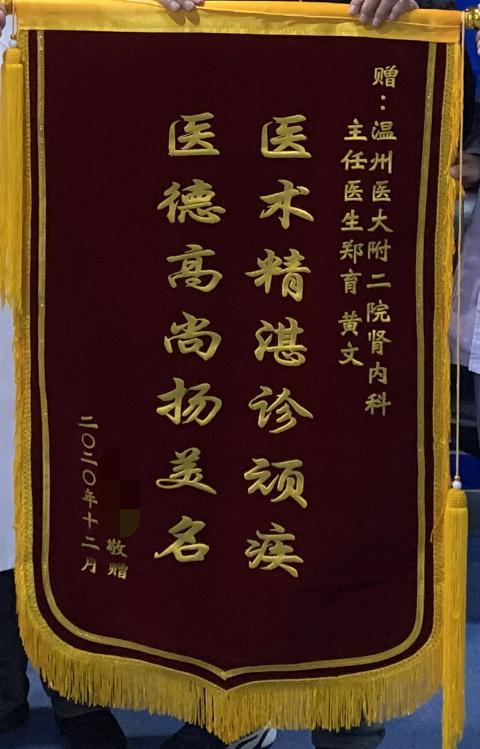 赠：温州医大附二院肾内科
主任医生郑育 黄文
医术精湛诊顽疾
医德高尚扬美名
敬赠
二〇二〇年十二月